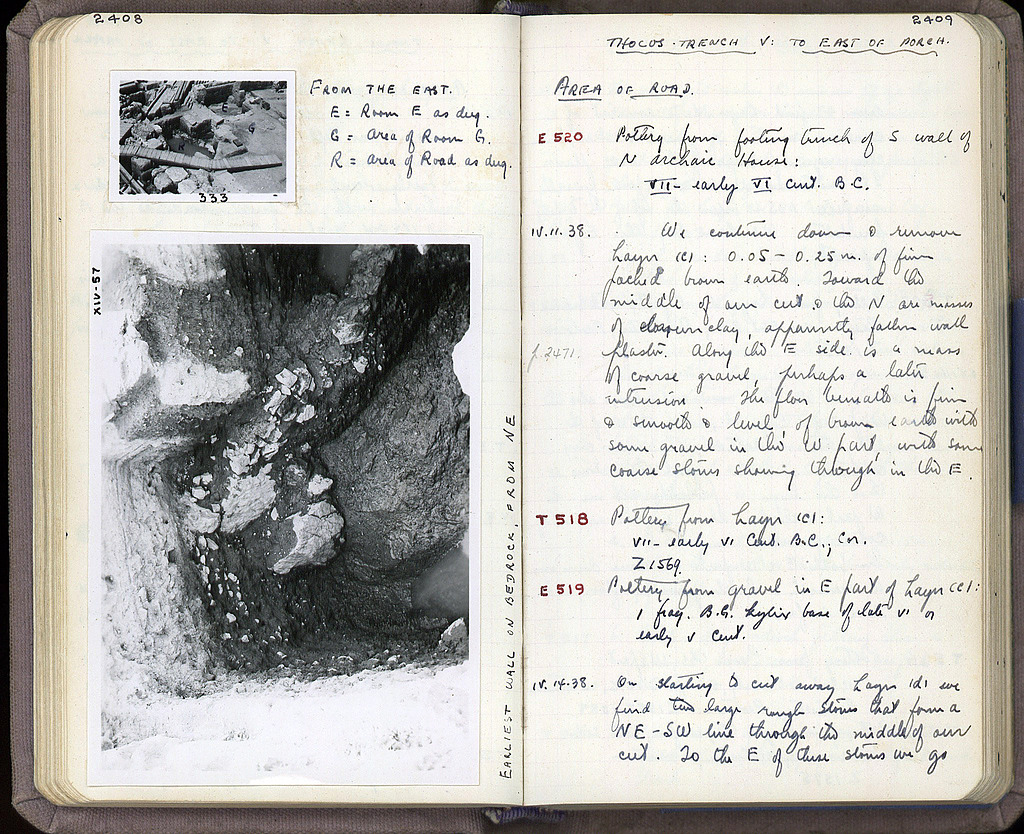 2408
FROM THE EAST.
E = Room E as dug.
G = Area of Room G.
R = Area of Road as dug.
333
XIV-57
EARLIEST WALL ON BEDROCK, FROM NE
2409
THOLOS-TRENCH V: TO EAST OF PORCH.
AREA OF ROAD.
E 520 Pottery from footing trench of S wall of
N archaic House:
VII - early VI cent. B.C.
IV.11.38. We continue down & remove
Layer (c): 0.05 - 0.25 m. of firm
packed brown earth. Toward the
middle of our cut & the N are masses
of clay, apparently fallen wall
p. 2471. plaster. Along the E side is a mass
of coarse gravel, perhaps a later
intrusion. The floor beneath is firm
& smooth & level, of brown earth with
some gravel in the W part, with some
coarse stones showing through in the E.
T 518 Pottery from Layer (c):
VII - early VI Cent. B.C., Cor.
Z 1569.
E 519 Pottery from gravel in E part of Layer (c):
1 frag. B.G. kylix base of late VI or
early V cent.
IV.14.38. On starting to cut away Layer (d) we
find two large rough stones that form a
NE-SW line through the middle of our
cut. To the E of these stones we go